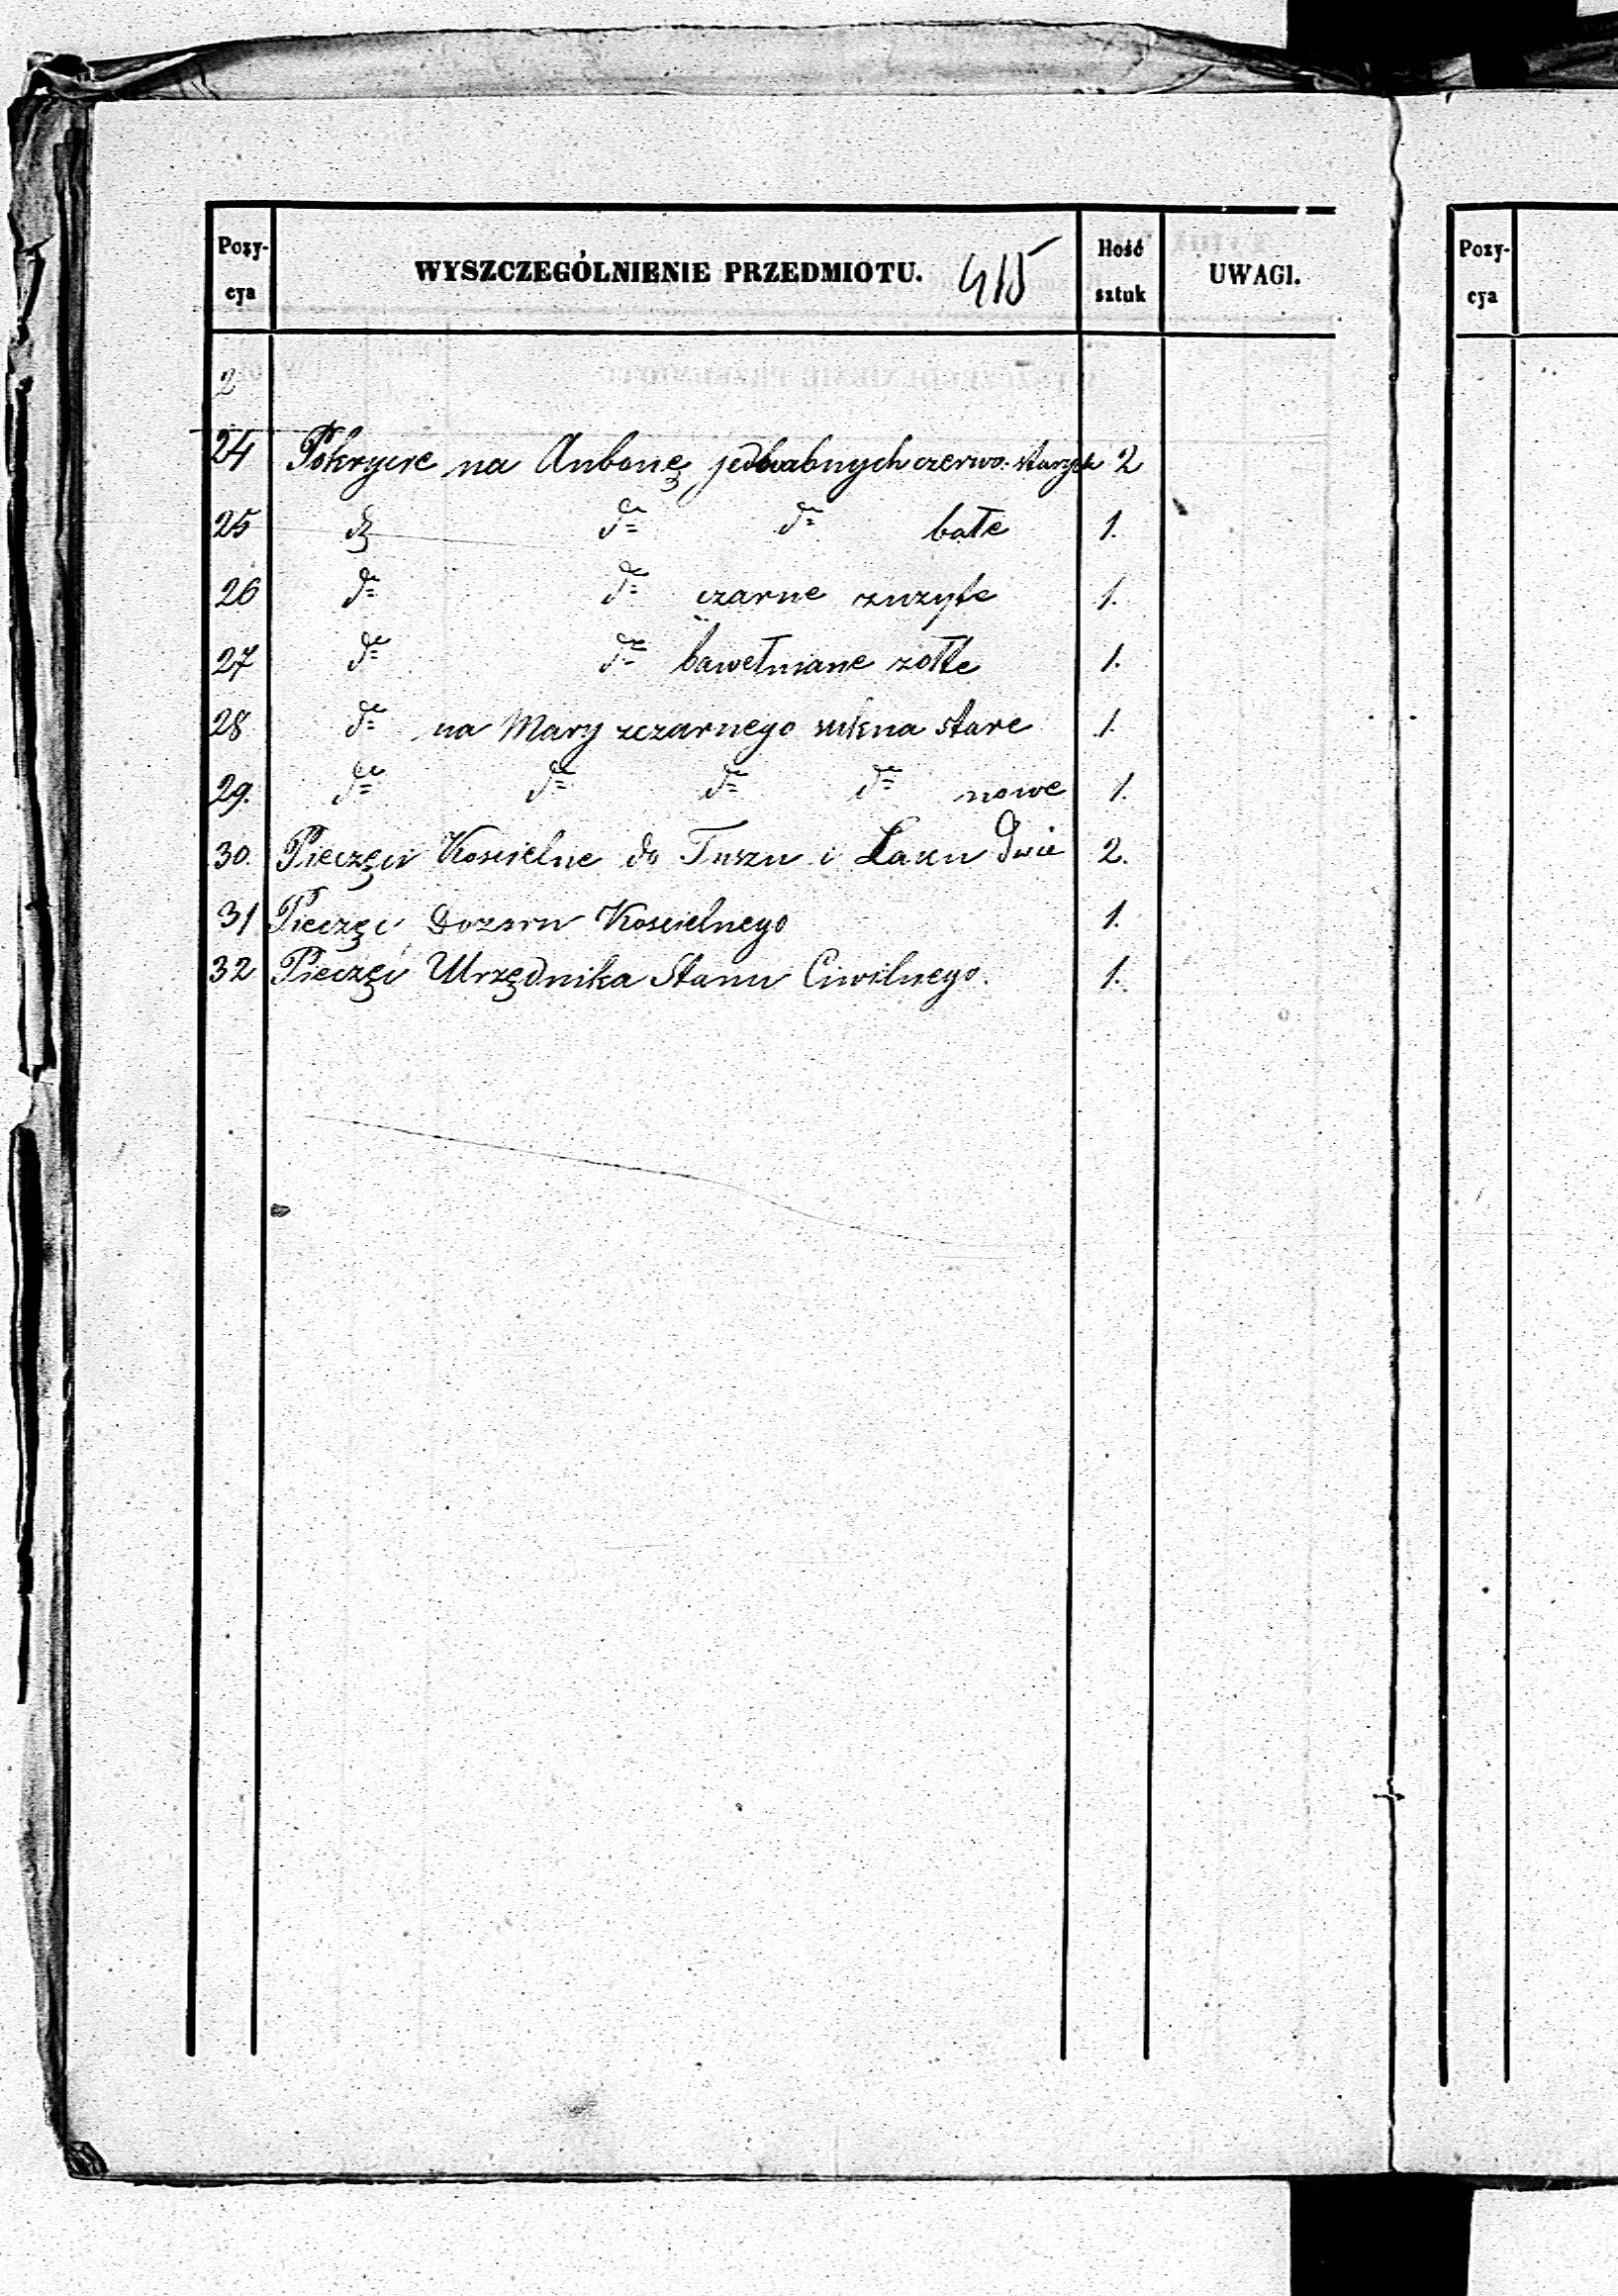 Pozy-
cya
WYSZCZEGÓLNIENIE PRZEDMIOTU. 415
Ilość
sztuk
UWAGI.
2
24 Pokrycie na Ambonę jedwabnych czerwo. starych 2
25 dº dº dº bałe 1.
26 dº dº czarne zuzyte 1.
27 dº dº bawełniane zołte 1.
28 dº na Mary zczarnego sukna stare 1.
29. dº dº dº dº nowe 1.
30. Pieczęci Koscielne do Tuszu i Laku Dwie 2.
31 Pieczęć Dozoru Koscielnego 1.
32 Pieczęć Urzędnika Stanu Ciwilnego. 1.
Pozy-
cya